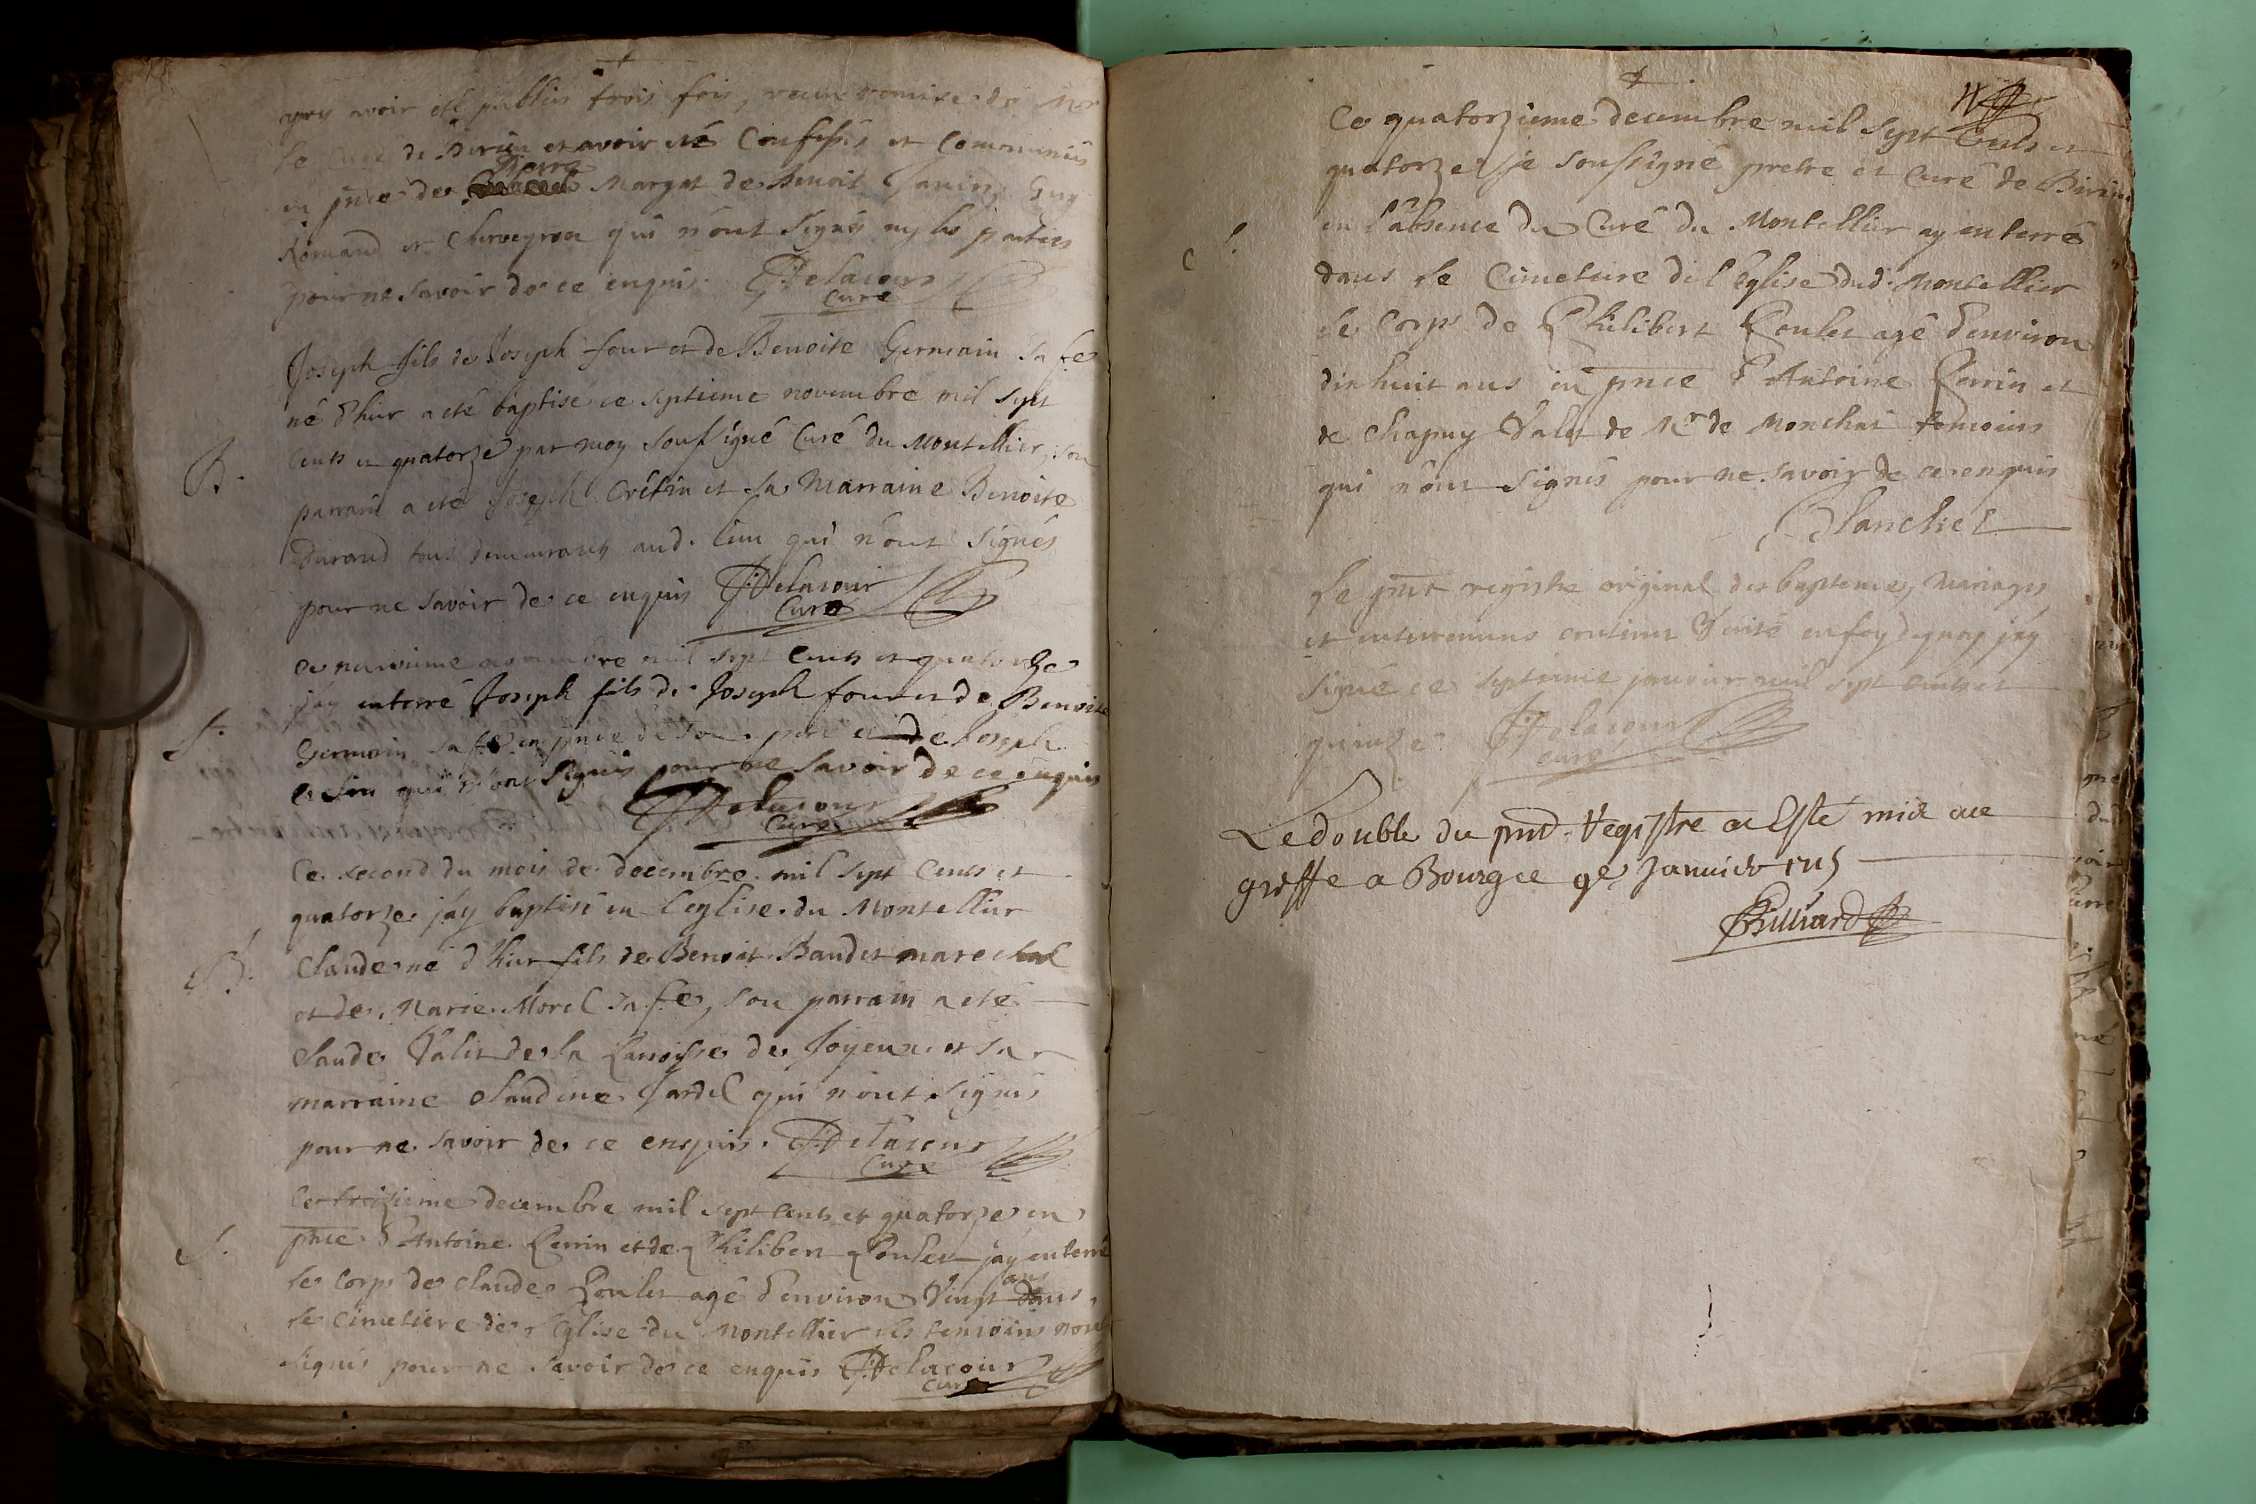 avoir esté publies trois fois, remise de Mr
le Curé de Birieu et avoir eté Confessés et Communiés
en pnce de Pierre Margat de Benoit Janin, Guy
Romand et Cherveyron qui n'ont signés ny les parties
pour ne savoir de ce enquis. Delacour
Curé
Joseph fils de Joseph four et de Benoite Germain sa fe
né d'hier a eté baptisé ce septieme novembre mil sept
B.
cents et quatorze par moy soussigné Curé du Montellier, son
parrain a eté Joseph Crétin et sa Marraine Benoite
Durand tous demeurants aud. lieu qui n'ont signés
pour ne savoir de ce enquis Delacour
Curé
Ce neuvieme novembre mil sept cents et quatorze
j'ay enterré Joseph fils de Joseph four et de Benoite
S.
Germain sa fe en pnce de son pere et de Joseph
Cretin qui n'ont signés pour ne savoir de ce enquis
Delacour
Curé
Ce second du mois de decembre mil sept cents et
quatorze j'ay baptisé en l'eglise du Montellier
B.
Claude né d'hier fils de Benoit Baudet marechal
et de Marie Morel sa fe, son parrain a eté
Claude Valet de la Parroisse de Joyeux et sa
marraine Claudine Jardel qui n'ont signés
pour ne savoir de ce enquis. Delacour
Curé
Ce treizieme decembre mil sept cents et quatorze en
S.
pnce d'Antoine Perrin et de Philibert Poulet j'ay enterré
le corps de Claude Poulet agé d'environ Vingt ans dans
le Cimetiere de l'Eglise du Montellier les temoins n'ont
signés pour ne savoir de ce enquis Delacour
Curé
Ce quatorzieme decembre mil sept Cents et
quatorze je soussigné pretre et Curé de Birieu
en l'absence du Curé du Montellier ay enterré
S.
dans le Cimetiere de l'Eglise dud. Montellier
le Corps de Philibert Poulet agé d'environ
dixhuit ans en pnce d'Antoine Perrin et
de Chapuy Valet de Mr de Monchat temoins
qui n'ont signés pour ne savoir de ce enquis
Planchet
Le pnt registre original des baptemes, Mariages
et enterremens contient Verité en foy de quoy j'ay
signé ce septieme janvier mil sept cents et
quinze Delacour
Curé
Le double du pnt Registre a Esté mis au
greffe a Bourg ce 9e Janvier 1715
Billiard